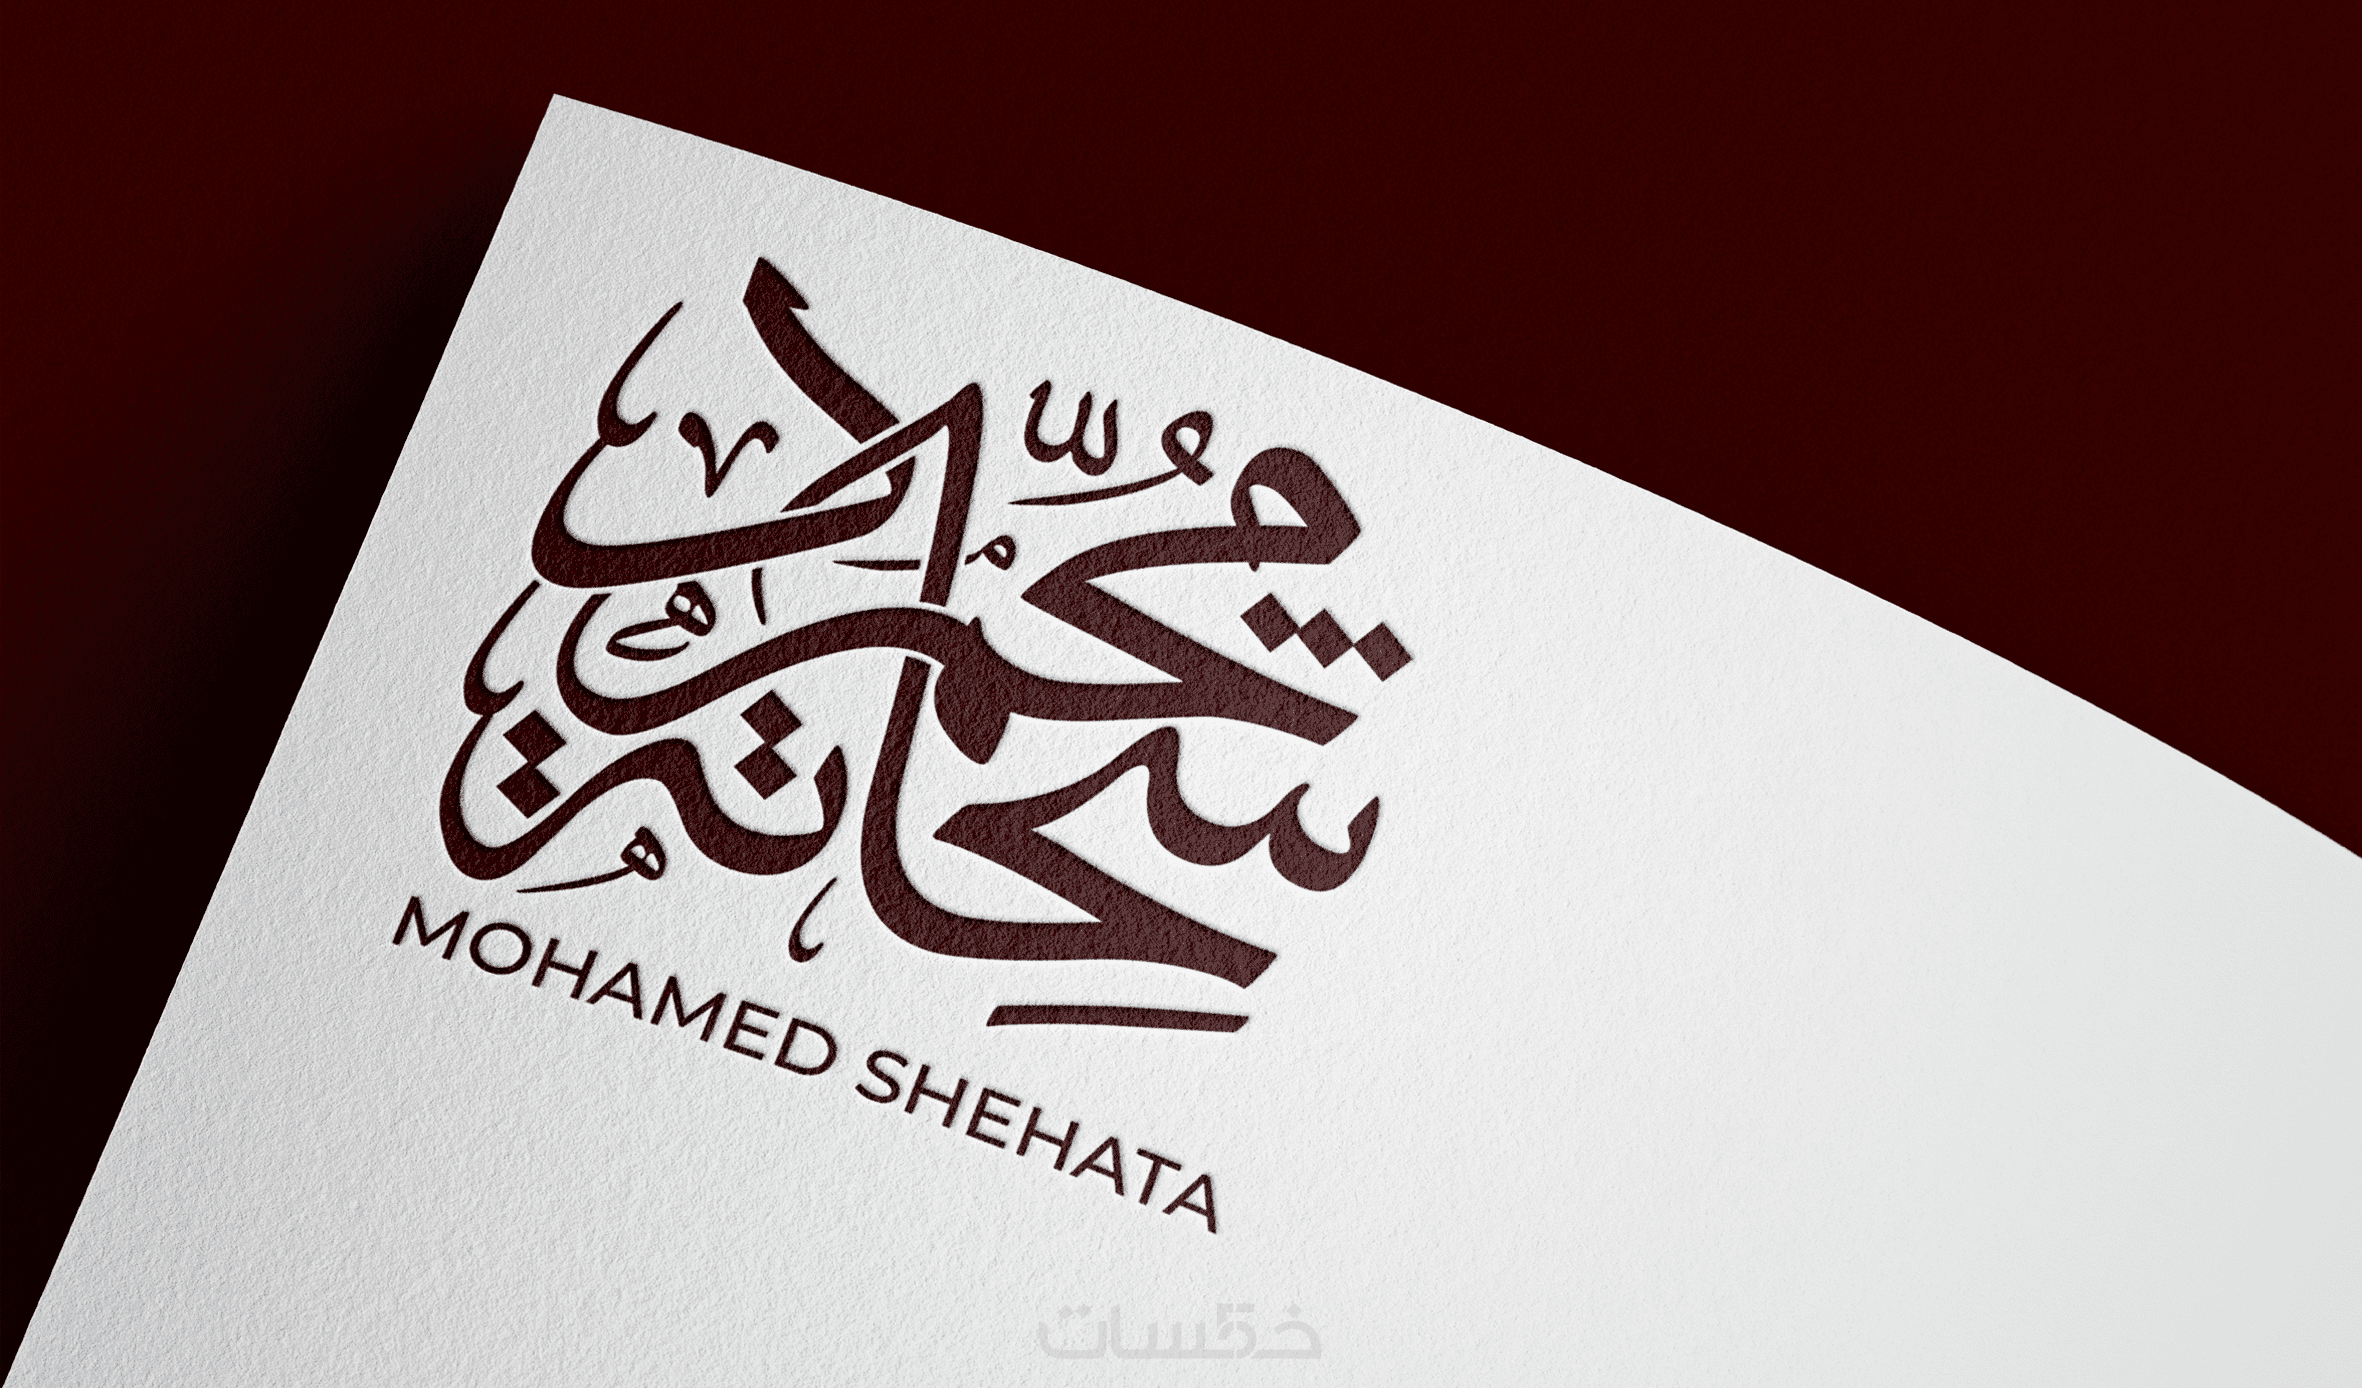 محمد شحاتة
MOHAMED SHEHATA
خمسات